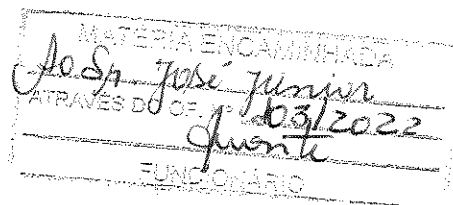 MATÉRIA ENCAMINHADA
Ao Sr. José Junior
ATRAVÉS DO OF. Nº 103/2022
FUNCIONÁRIO